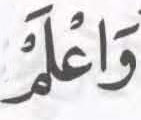 وَاعْلَمْ